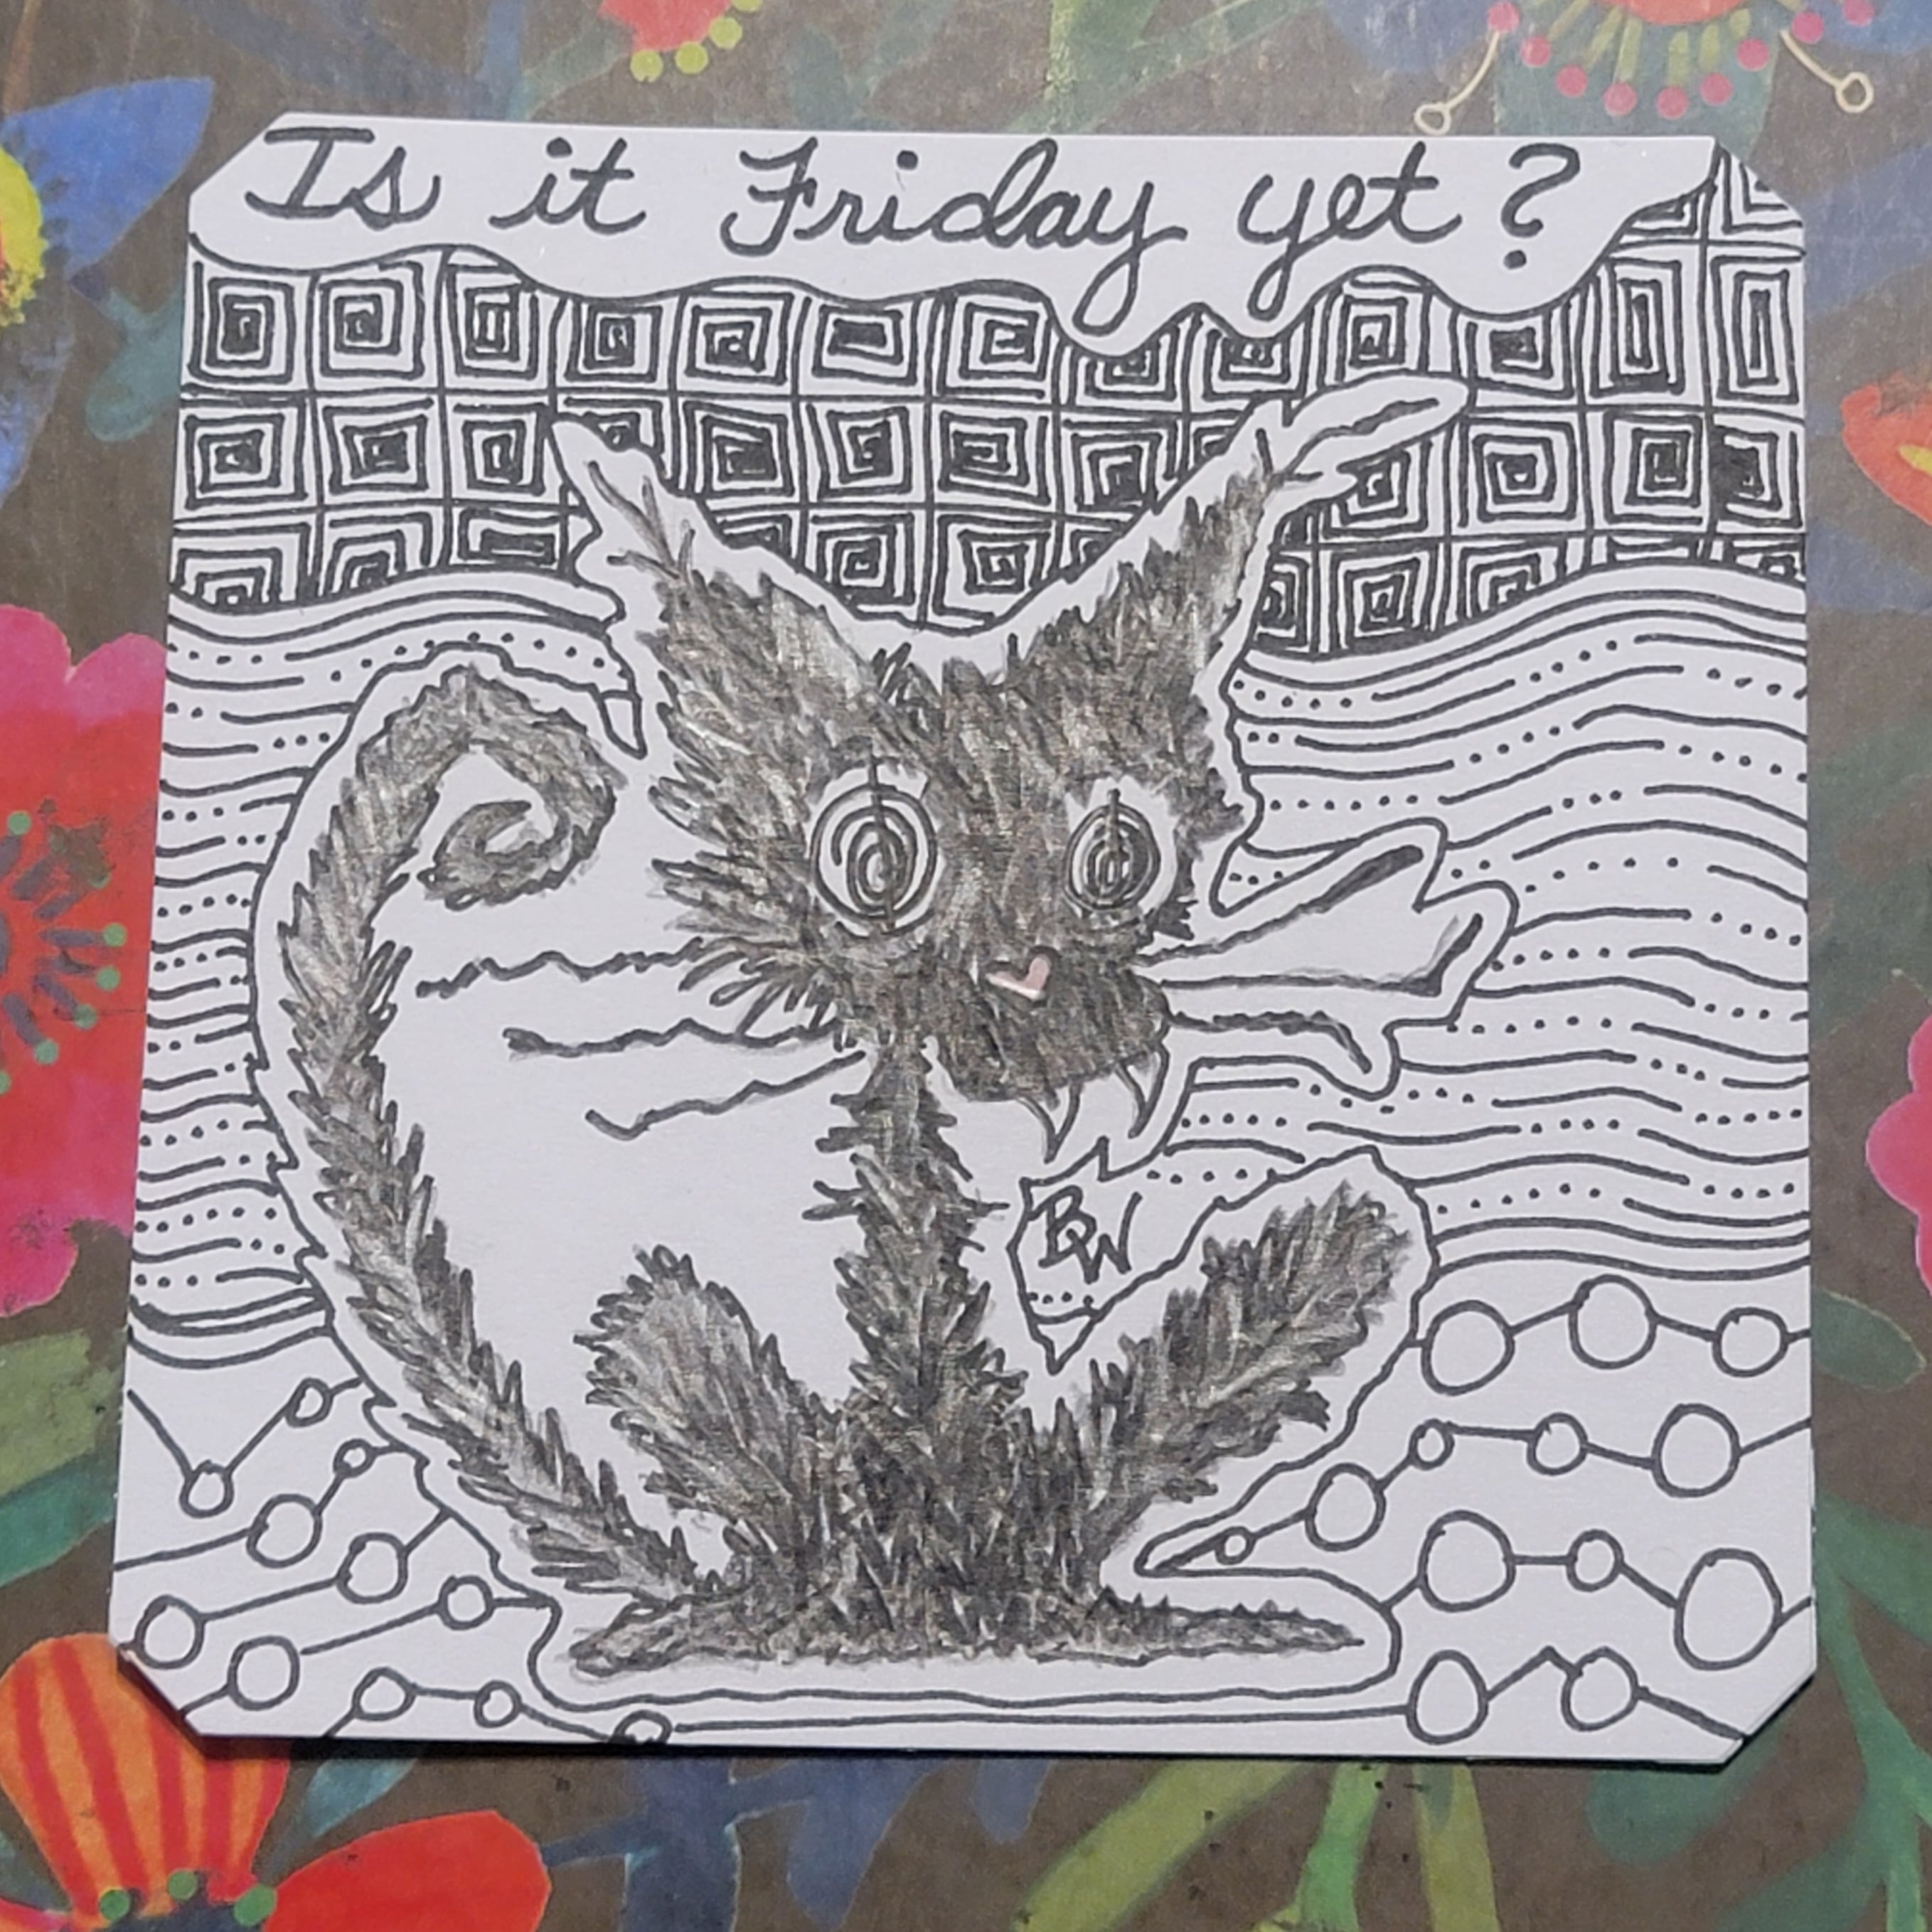 Is it Friday yet?
BW